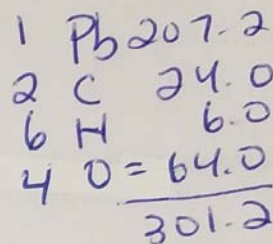 1 Pb 207.2
2 C 24.0
6 H 6.0
4 O = 64.0
301.2